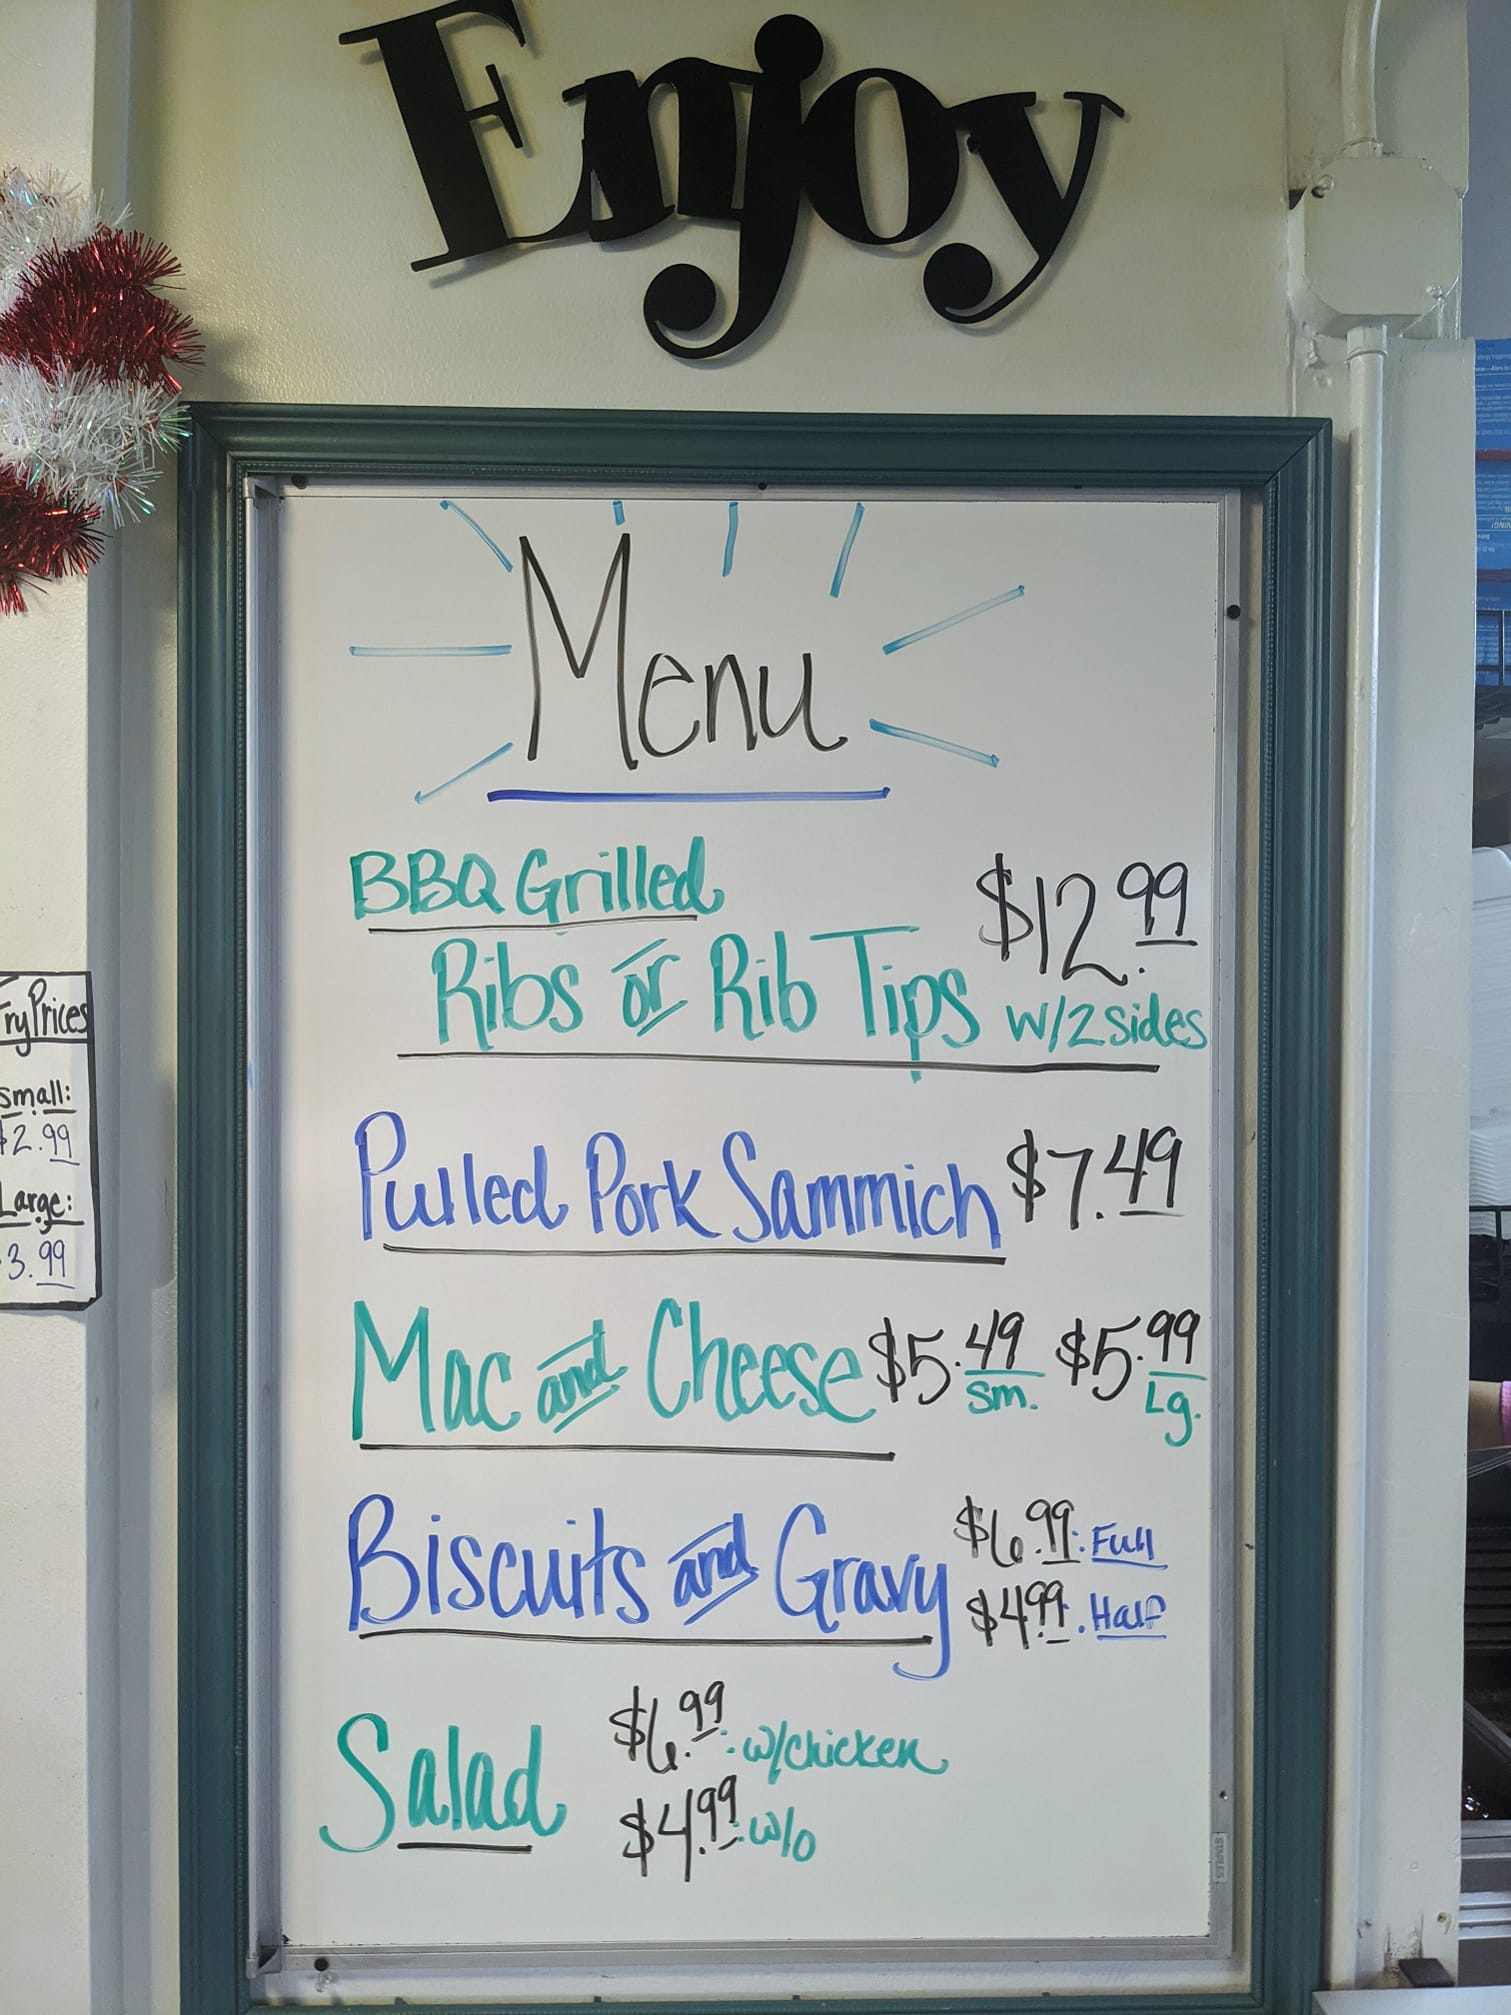 Enjoy
Menu
BBQ Grilled
Ribs or Rib Tips
$12.99
w/2 sides
Pulled Pork Sammich $7.49
Mac and Cheese $5.49 $5.99
Sm. Lg.
Biscuits and Gravy
$6.99: Full
$4.99: Half
Salad
$6.99: w/chicken
$4.99: w/o
Fry Prices
Small:
$2.99
Large:
3.99
STAPLES